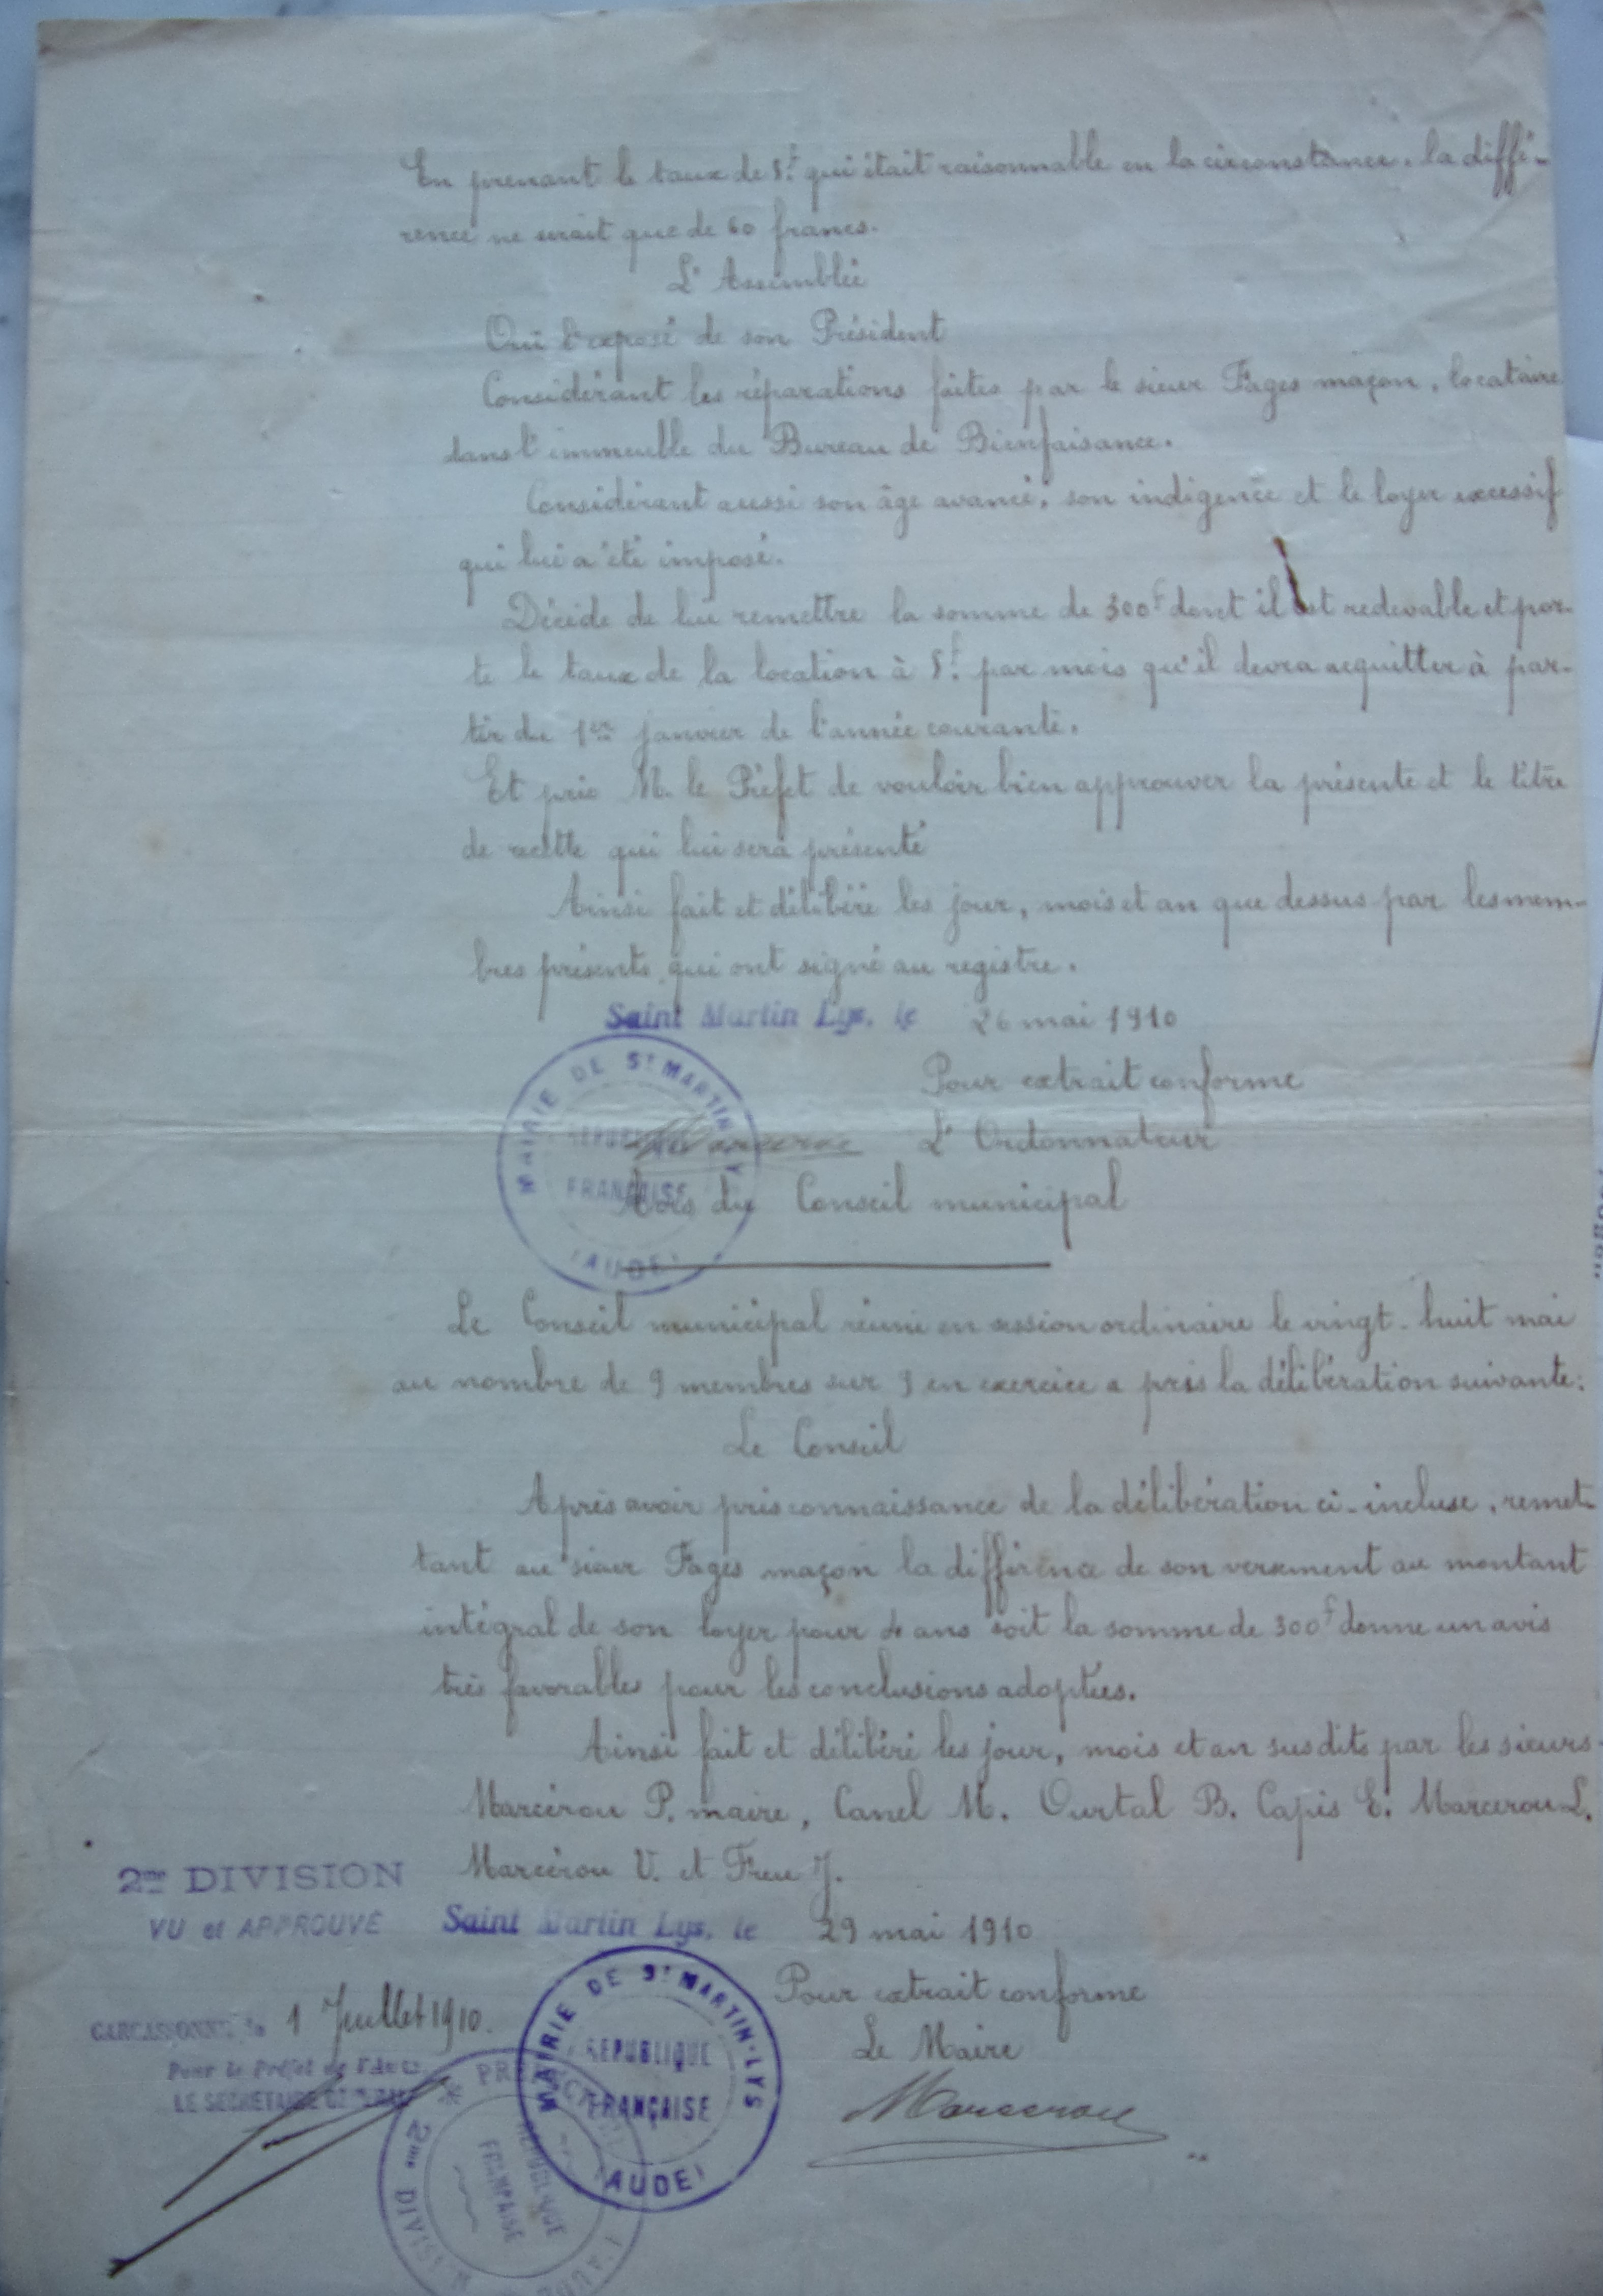 En prenant le taux de 5f. qui était raisonnable en la circonstance, la diffé-
rence ne serait que de 60 francs.
L'Assemblée
Ouï l'exposé de son Président
Considérant les réparations faites par le sieur Fages maçon, locataire
dans l'immeuble du Bureau de Bienfaisance.
Considérant aussi son âge avancé, son indigence et le loyer excessif
qui lui a été imposé.
Décide de lui remettre la somme de 300f dont il est redevable et por-
te le taux de la location à 5f. par mois qu'il devra acquitter à par-
tir du 1er janvier de l'année courante.
Et prie M. le Préfet de vouloir bien approuver la présente et le titre
de recette qui lui sera présenté
Ainsi fait et délibéré les jour, mois et an que dessus par les mem-
bres présents qui ont signé au registre.
Saint Martin Lys, le 26 mai 1910
Pour extrait conforme
L'Ordonnateur
Marcerou
MAIRIE DE ST MARTIN-LYS
RÉPUBLIQUE
FRANÇAISE
(AUDE)
Avis du Conseil municipal
Le Conseil municipal réuni en session ordinaire le vingt-huit mai
au nombre de 9 membres sur 9 en exercice a pris la délibération suivante:
Le Conseil
Après avoir pris connaissance de la délibération ci-incluse, remet-
tant au sieur Fages maçon la différence de son versement au montant
intégral de son loyer pour 4 ans soit la somme de 300f donne un avis
très favorables pour les conclusions adoptées.
Ainsi fait et délibéré les jour, mois et an susdits par les sieurs
Marcérou P. maire, Canel M. Ourtal B. Capis E. Marcerou L.
Marcérou V. et Freu J.
Saint Martin Lys, le 29 mai 1910
Pour extrait conforme
Le Maire
Marcerou
MAIRIE DE ST MARTIN-LYS
RÉPUBLIQUE
FRANÇAISE
(AUDE)
2me DIVISION
VU et APPROUVÉ
CARCASSONNE le 1 Juillet 1910.
Pour le Préfet de l'Aude
LE SECRÉTAIRE GÉNÉRAL
PRÉFECTURE L'AUDE
2me DIVISION
RÉPUBLIQUE
FRANÇAISE